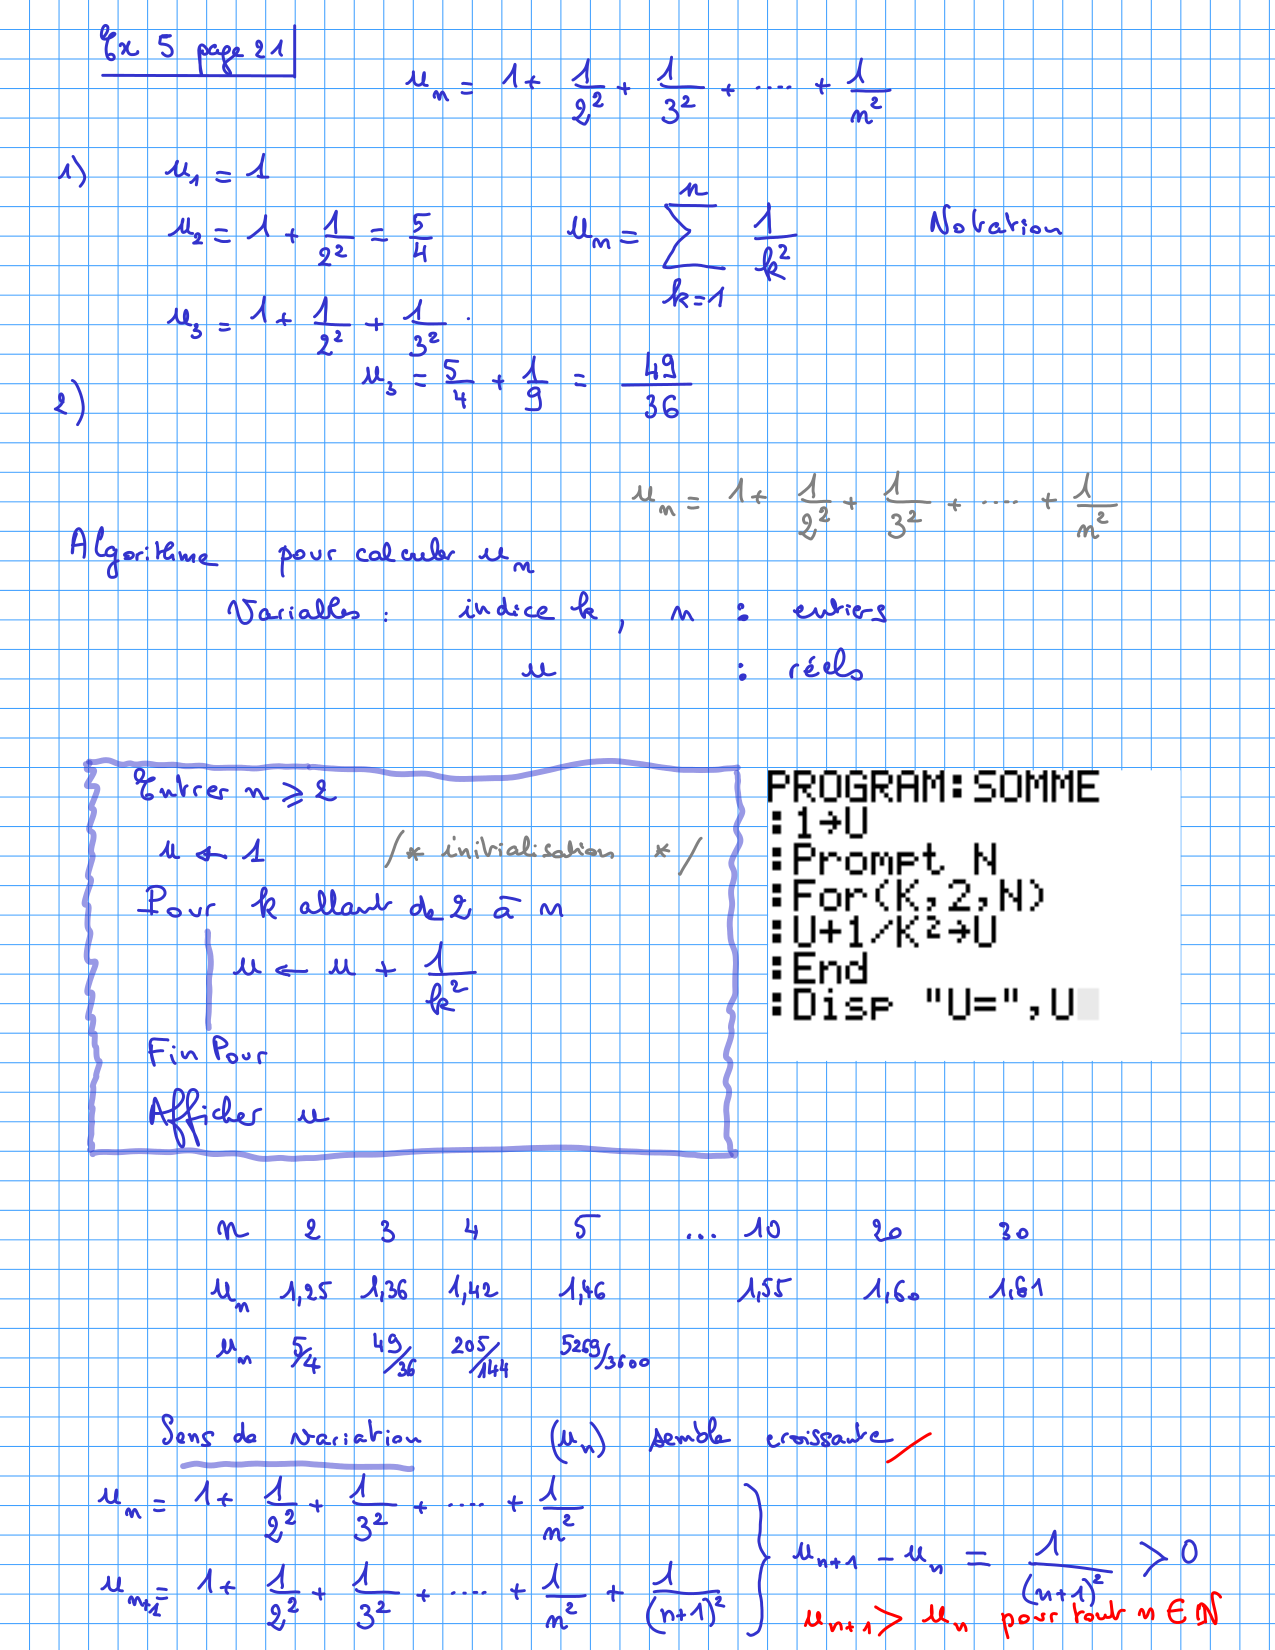 Ex 5 page 21
u_n = 1 + 1/2² + 1/3² + .... + 1/n²
1) u_1 = 1
u_2 = 1 + 1/2² = 5/4
u_n = ∑_{k=1}^{n} 1/k² Notation
u_3 = 1 + 1/2² + 1/3²
u_3 = 5/4 + 1/9 = 49/36
2)
u_n = 1 + 1/2² + 1/3² + .... + 1/n²
Algorithme pour calculer u_n
Variables : indice k, n : entiers
u : réels
Entrer n ⩾ 2
u ← 1 /* initialisation */
Pour k allant de 2 à n
u ← u + 1/k²
Fin Pour
Afficher u
PROGRAM:SOMME
:1→U
:Prompt N
:For(K,2,N)
:U+1/K²→U
:End
:Disp "U=",U
n 2 3 4 5 ... 10 20 30
u_n 1,25 1,36 1,42 1,46 1,55 1,60 1,61
u_n 5/4 49/36 205/144 5269/3600
Sens de variation (u_n) semble croissante
u_n = 1 + 1/2² + 1/3² + .... + 1/n²
u_{n+1} = 1 + 1/2² + 1/3² + .... + 1/n² + 1/(n+1)²
u_{n+1} - u_n = 1/(n+1)² > 0
u_{n+1} > u_n pour tout n ∈ ℕ